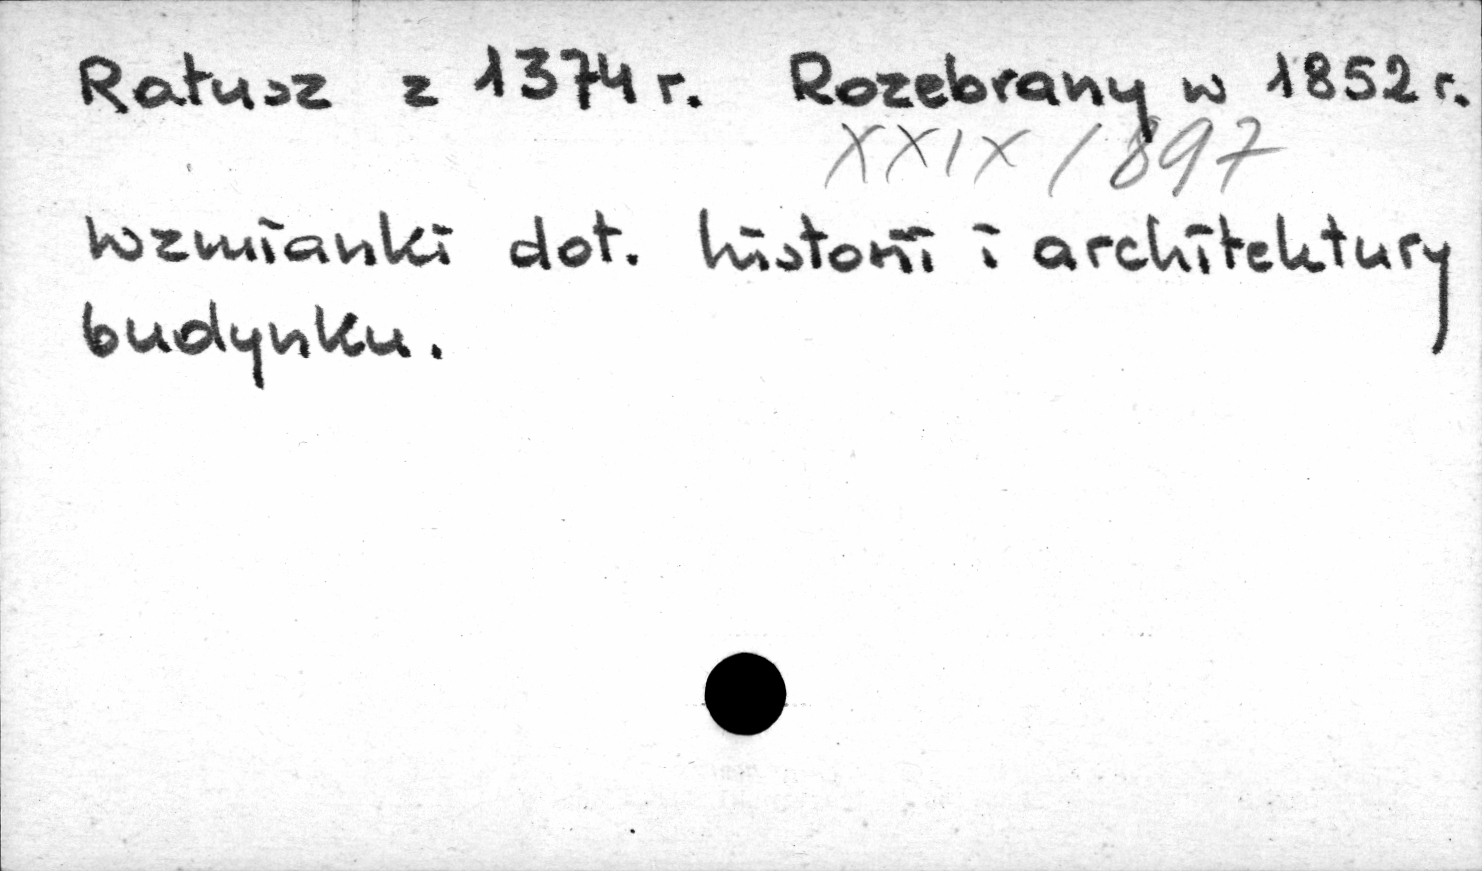 Ratusz z 1374 r. Rozebrany w 1852 r.
XXIX/897
Wzmianki dot. historii i architektury
budynku.